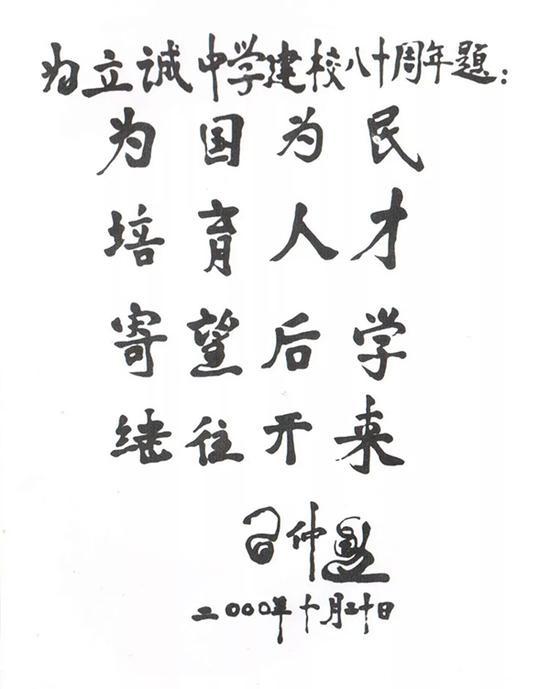 为立诚中学建校八十周年题：
为国为民
培育人才
寄望后学
继往开来
习仲勋
二〇〇〇年十月二十日